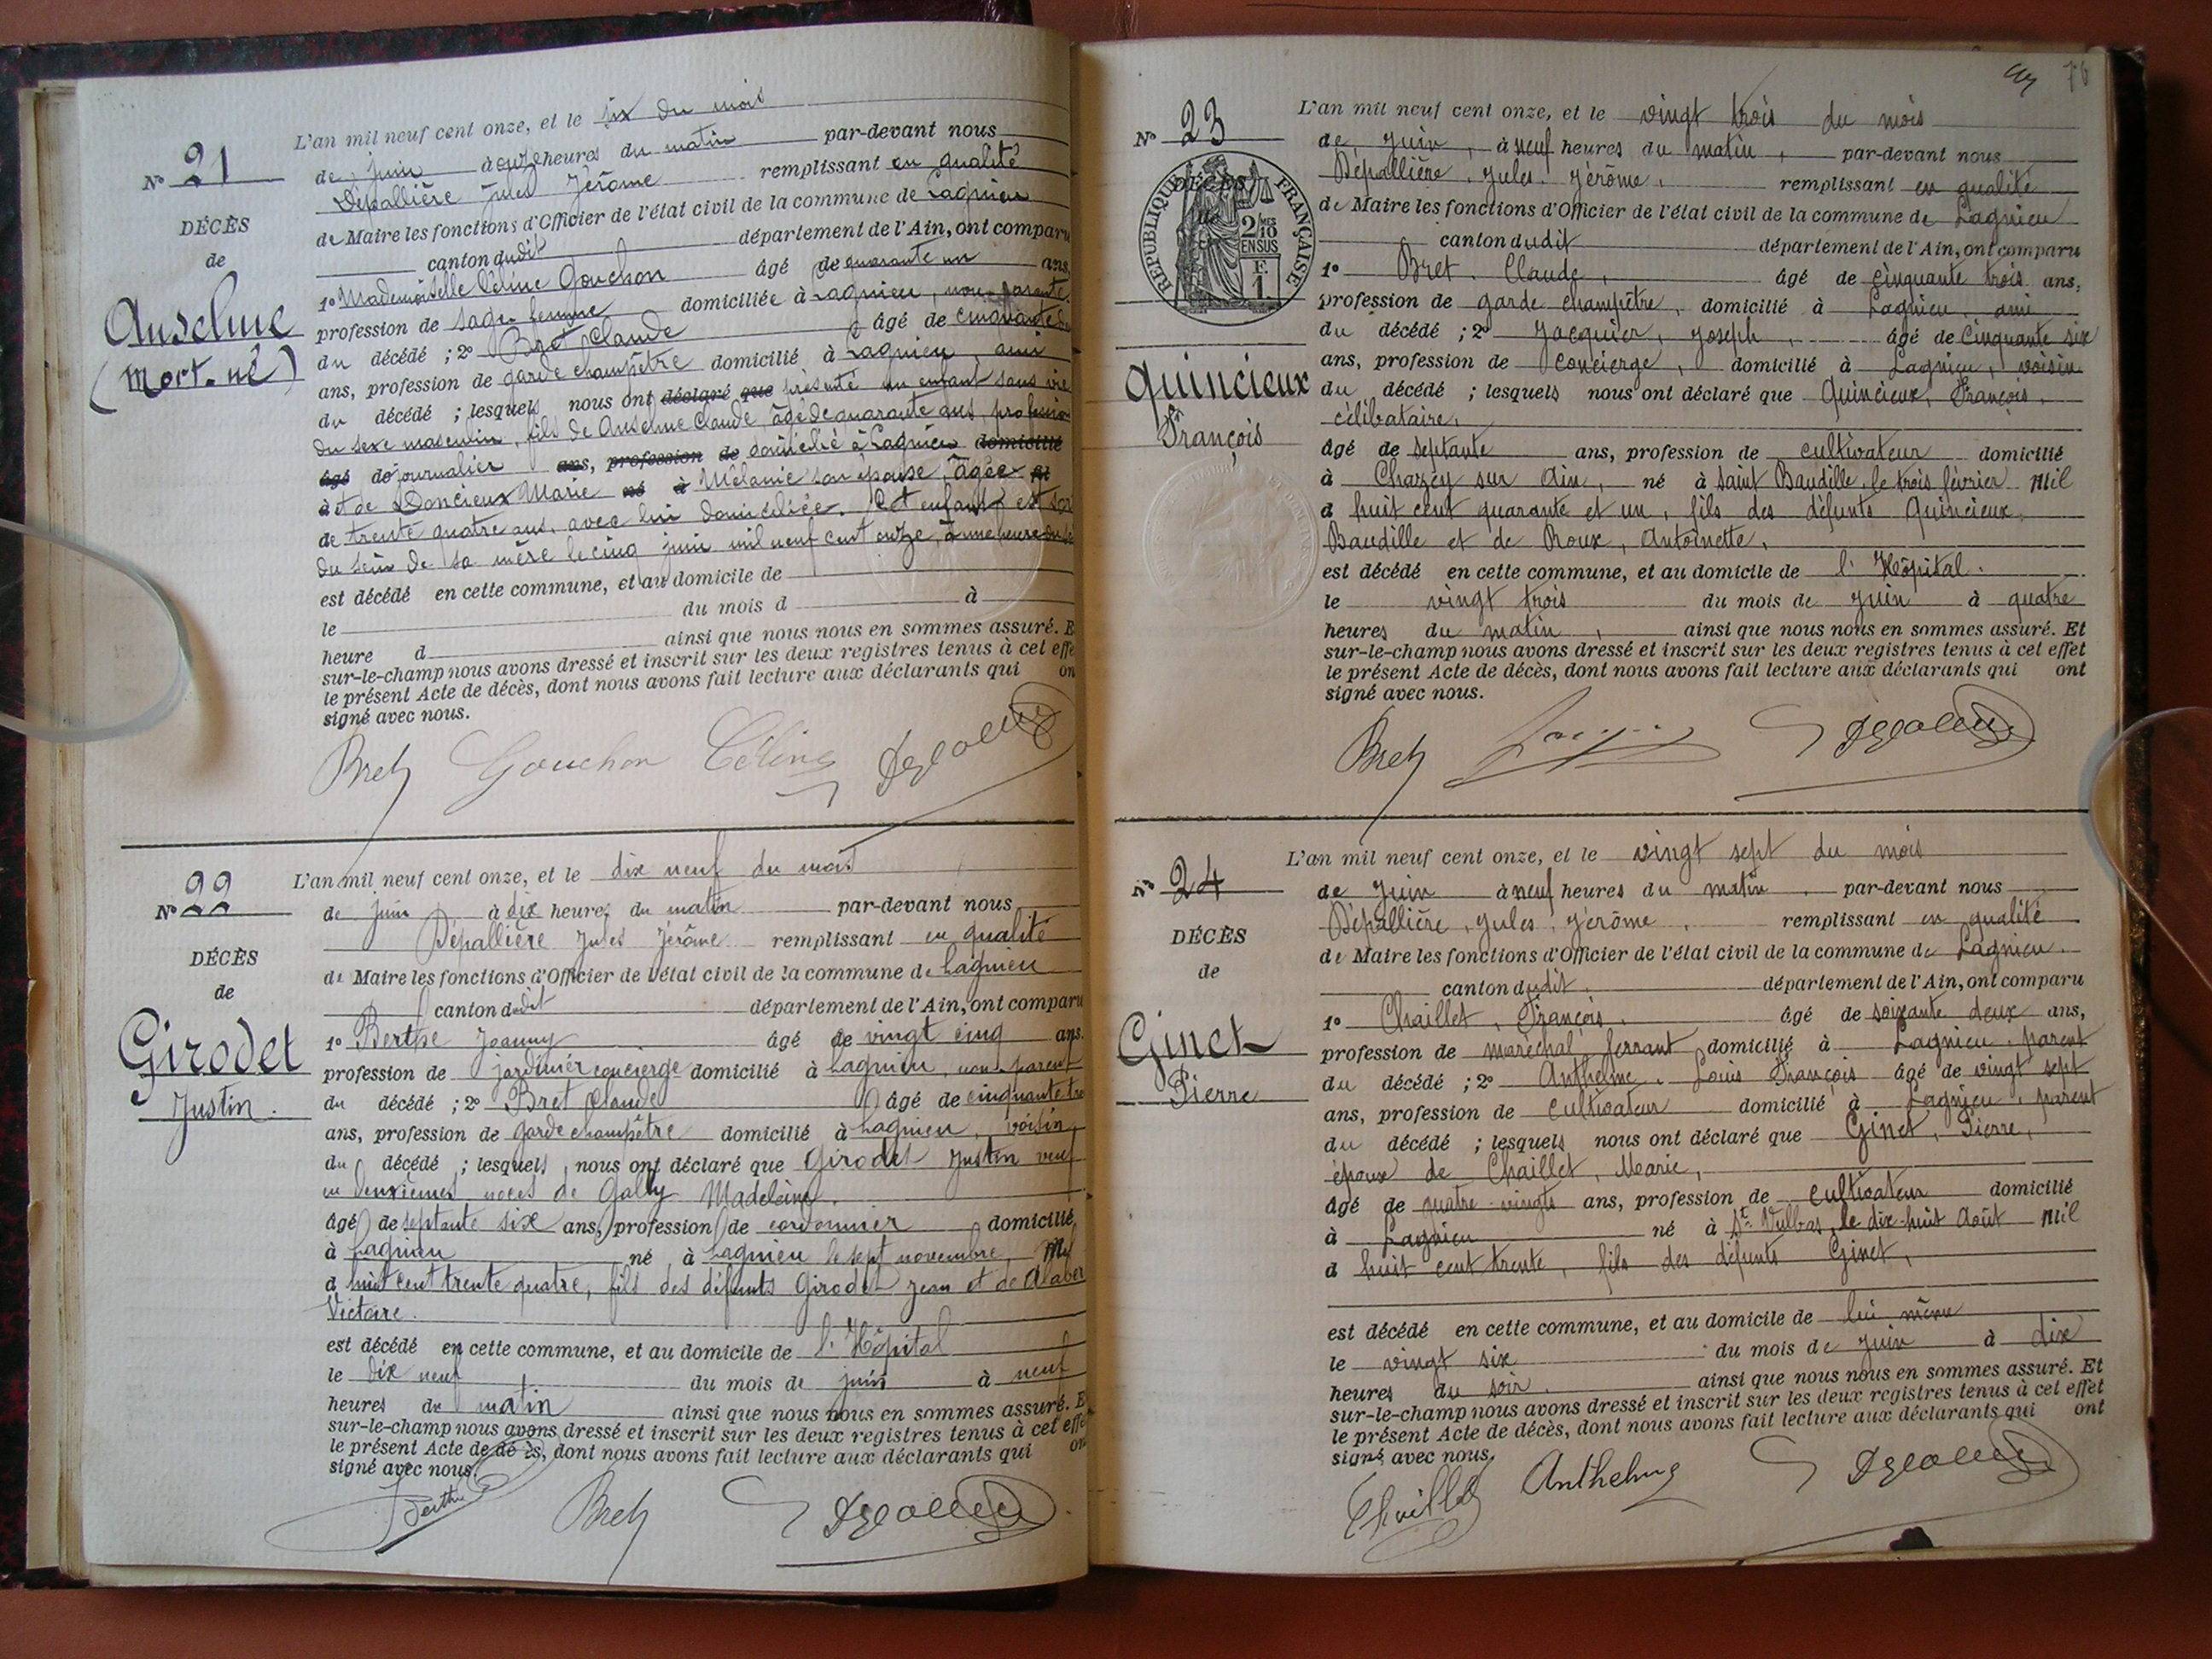 N° 21
DÉCÈS
de
Anselme
(Mort-né)
L'an mil neuf cent onze, et le six du mois
de juin à onze heures du matin par-devant nous
Dépallière Jules Jérôme remplissant en qualité
de Maire les fonctions d'Officier de l'état civil de la commune de Lagnieu
canton dudit département de l'Ain, ont comparu
1° Mademoiselle Céline Gouchon âgé de quarante un ans,
profession de sage femme domiciliée à Lagnieu, non parente
du décédé ; 2° Bret Claude âgé de cinquante
ans, profession de garde champêtre domicilié à Lagnieu, ami
du décédé ; lesquels nous ont déclaré que présenté un enfant sans vie
du sexe masculin, fils de Anselme Claude, âgé de quarante ans, profession
âgé de journalier ans, profession de domicilié à Lagnieu domicilié
à et de Doncieux Marie né à Mélanie son épouse, âgée
de trente quatre ans, avec lui domiciliée. Cet enfant est
du sein de sa mère le cinq juin mil neuf cent onze, à une heure du
est décédé en cette commune, et au domicile de
le du mois d à
heure d ainsi que nous nous en sommes assuré. E
sur-le-champ nous avons dressé et inscrit sur les deux registres tenus à cet effe
le présent Acte de décès, dont nous avons fait lecture aux déclarants qui on
signé avec nous.
Bret Gouchon Céline
N° 22
DÉCÈS
de
Girodet
Justin.
L'an mil neuf cent onze, et le dix neuf du mois
de juin à dix heures du matin par-devant nous
Dépallière Jules Jérôme remplissant en qualité
de Maire les fonctions d'Officier de l'état civil de la commune de Lagnieu
canton dudit département de l'Ain, ont comparu
1° Berthe Joanny âgé de vingt cinq ans.
profession de jardinier concierge domicilié à Lagnieu, non parent
du décédé ; 2° Bret Claude âgé de cinquante
ans, profession de garde champêtre domicilié à Lagnieu, voisin
du décédé ; lesquels nous ont déclaré que Girodet Justin veuf
en deuxièmes noces de Gally Madeleine.
âgé de septante six ans, profession de cordonnier domicilié
à Lagnieu né à Lagnieu le sept novembre Mil
d huit cent trente quatre, fils des défunts Girodet Jean et de
Victoire.
est décédé en cette commune, et au domicile de l'Hôpital
le dix neuf du mois de juin à neuf
heures du matin ainsi que nous nous en sommes assuré. E
sur-le-champ nous avons dressé et inscrit sur les deux registres tenus à cet effe
le présent Acte de dé ès, dont nous avons fait lecture aux déclarants qui on
signé avec nous.
Berthe Bret
76
N° 23
DÉCÈS
RÉPUBLIQUE FRANÇAISE
2/10 MES
EN SUS
F.
1.
Quincieux
François
L'an mil neuf cent onze, et le vingt trois du mois
de Juin, à neuf heures du matin, par-devant nous
Dépallière, Jules, Jérôme, remplissant en qualité
de Maire les fonctions d'Officier de l'état civil de la commune de Lagnieu
canton dudit département de l'Ain, ont comparu
1° Bret, Claude, âgé de cinquante trois ans,
profession de garde champêtre, domicilié à Lagnieu, ami
du décédé ; 2° Jacquier, Joseph, âgé de Cinquante six
ans, profession de Concierge, domicilié à Lagnieu, voisin
du décédé ; lesquels nous ont déclaré que Quincieux, François,
célibataire,
âgé de septante ans, profession de cultivateur domicilié
à Chazey sur Ain, né à Saint Baudille, le trois février Mil
d huit cent quarante et un, fils des défunts Quincieux,
Baudille et de Roux, Antoinette,
est décédé en cette commune, et au domicile de l'Hôpital.
le vingt trois du mois de Juin à quatre
heures du matin, ainsi que nous nous en sommes assuré. Et
sur-le-champ nous avons dressé et inscrit sur les deux registres tenus à cet effet
le présent Acte de décès, dont nous avons fait lecture aux déclarants qui ont
signé avec nous.
Bret
N° 24
DÉCÈS
de
Ginet
Pierre
L'an mil neuf cent onze, et le vingt sept du mois
de Juin à neuf heures du matin, par-devant nous
Dépallière, Jules, Jérôme, remplissant en qualité
de Maire les fonctions d'Officier de l'état civil de la commune de Lagnieu.
canton dudit. département de l'Ain, ont comparu
1° Chaillet, François, âgé de soixante deux ans,
profession de maréchal ferrant domicilié à Lagnieu, parent
du décédé ; 2° Anthelme, Louis François âgé de vingt sept
ans, profession de Cultivateur domicilié à Lagnieu, parent
du décédé ; lesquels nous ont déclaré que Ginet, Pierre,
époux de Chaillet, Marie,
âgé de quatre-vingts ans, profession de cultivateur domicilié
à Lagnieu né à St Vulbas, le dix-huit Août Mil
d huit cent trente, fils des défunts Ginet,
est décédé en cette commune, et au domicile de lui même
le vingt six du mois de Juin à dix
heures du soir. ainsi que nous nous en sommes assuré. Et
sur-le-champ nous avons dressé et inscrit sur les deux registres tenus à cet effet
le présent Acte de décès, dont nous avons fait lecture aux déclarants qui ont
signé avec nous.
Chaillet Anthelme